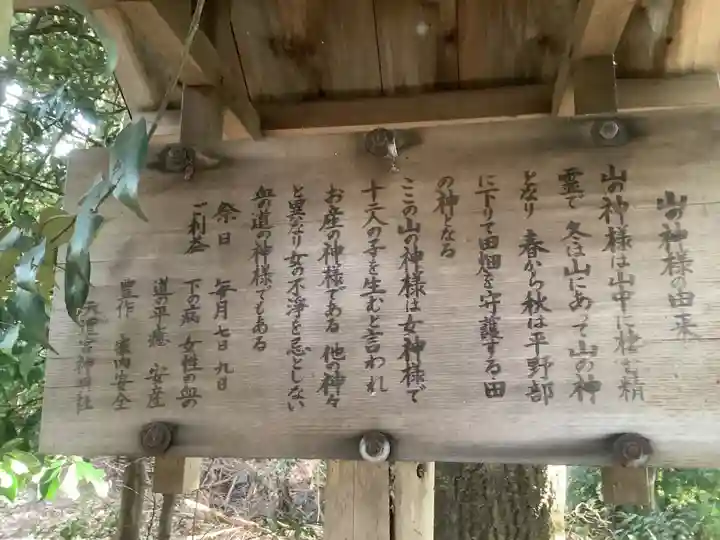 山の神様の由来
山の神様は山中に棲む精
霊で 冬は山にあって山の神
となり 春から秋は平野部
に下りて田畑を守護する田
の神となる
ここの山の神様は女神様で
十二人の子を生むと言われ
お産の神様である 他の神々
と異なり女の不浄を忌としない
血の道の神様でもある
祭日 毎月七日 九日
ご利益 下の病 女性の血の
道の平癒 安産
豊作 家内安全
宮神明社